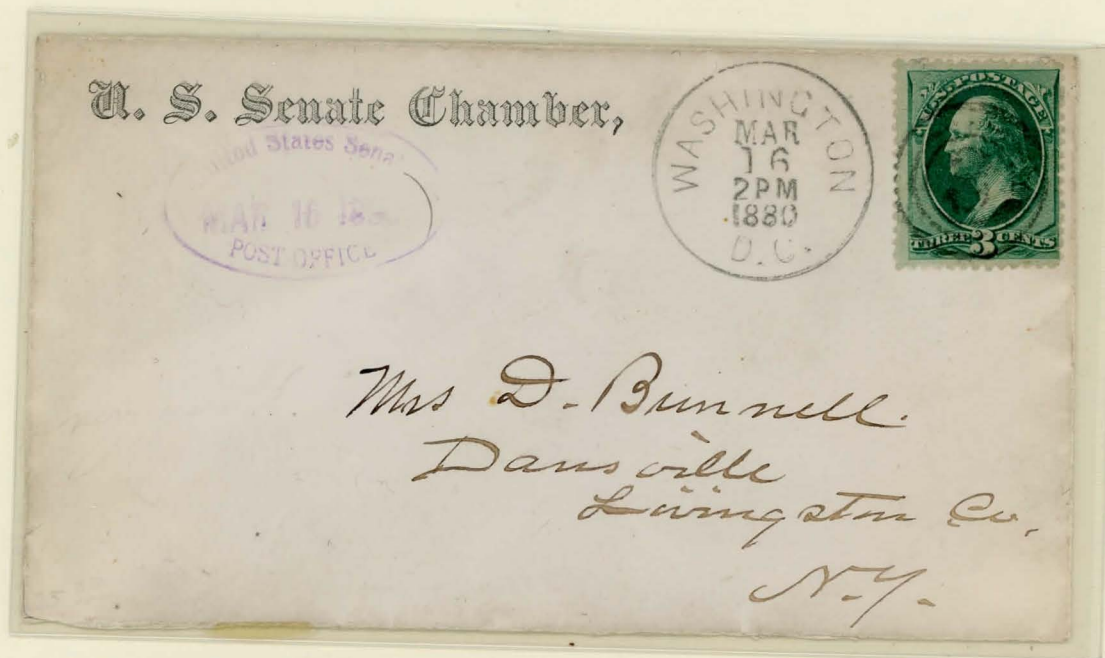 U. S. Senate Chamber,
United States Senat
MAR 16 18
POST OFFICE
WASHINGTON
MAR
16
2PM
1880
D.C.
U.S. POSTAGE
THREE 3 CENTS
Mrs D. Bunnell.
Dansville
Livingston Co.
N.Y.